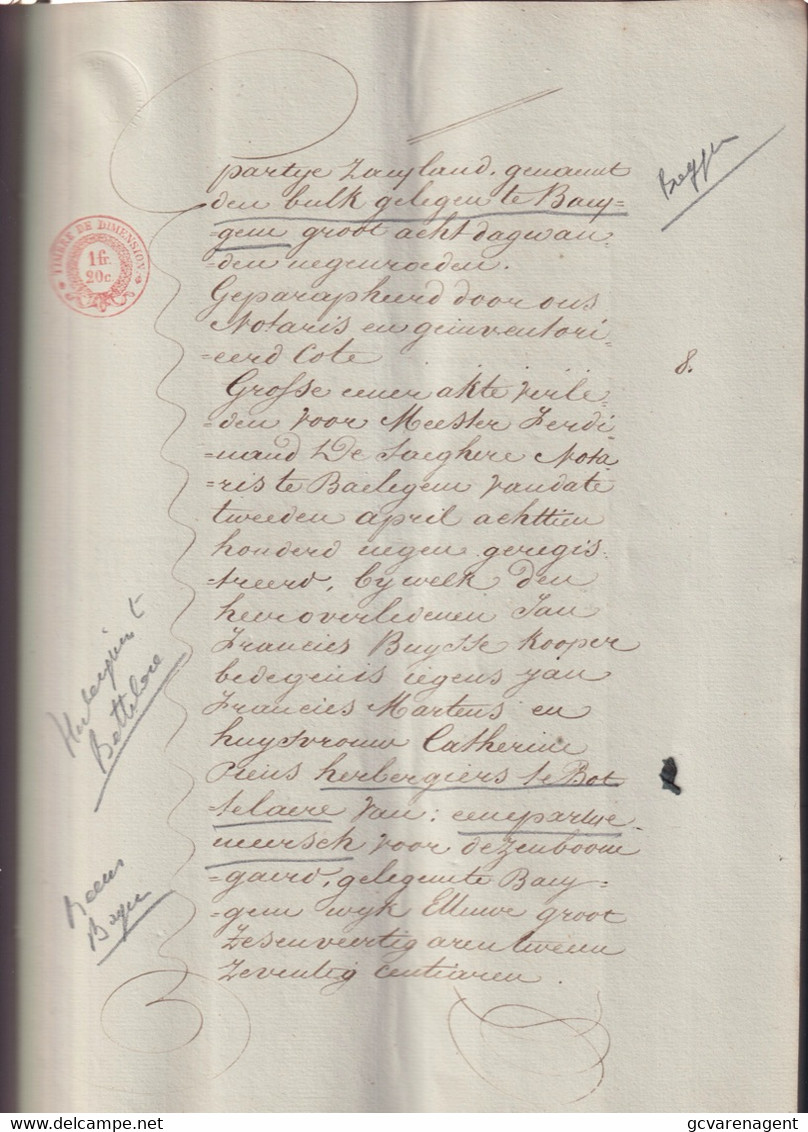 partye Zayland, genaamt
den bulk gelegen te Bay-
=gem groot acht dagwan=
=den negen roeden.
Geparapheerd door ons
Notaris en geinventori=
=eerd Cote
8.
Grosse eener akte verle=
=den voor Meester Ferdi=
=nand De Saeghere Nota=
=ris te Baelegem van date
tweeden april achttien
honderd negen geregis=
=treerd, by welk den
heer overledenen Jan
Francies Buysse kooper
bedegen is iegens Jan
Francies Martens en
huysvrouw Catherine
herbergiers te Bot=
=telaere van: eene partye
meersch voor dezen boom=
gaerd, gelegen te Bay=
=gem wyk groot
zesenveertig aren tween
zeventig centiaren.
TIMBRE DE DIMENSION
1 fr.
20 c.
Bottelare
gcvarenagent